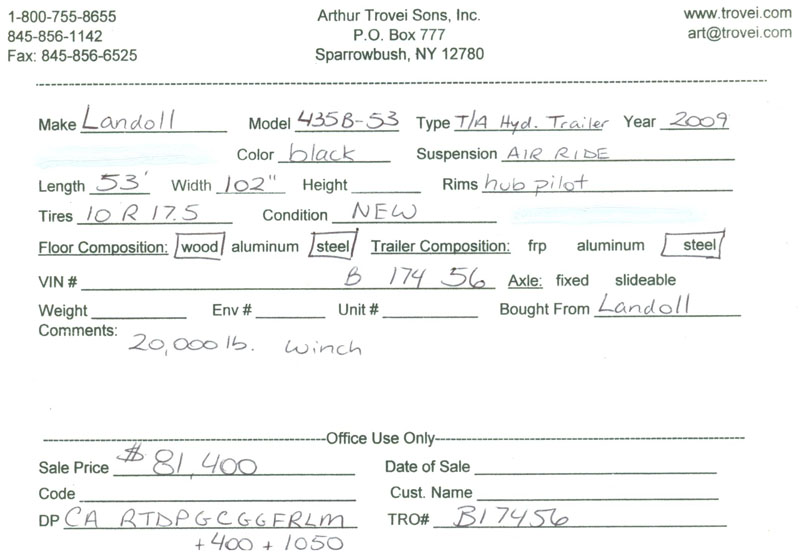 1-800-755-8655 Arthur Trovei Sons, Inc. www.trovei.com
845-856-1142 P.O. Box 777 art@trovei.com
Fax: 845-856-6525 Sparrowbush, NY 12780
Make Landoll Model 435B-53 Type T/A Hyd. Trailer Year 2009
Color black Suspension AIR RIDE
Length 53' Width 102" Height Rims hub pilot
Tires 10 R 17.5 Condition NEW
Floor Composition: wood aluminum steel Trailer Composition: frp aluminum steel
VIN # B 174 56 Axle: fixed slideable
Weight Env # Unit # Bought From Landoll
Comments: 20,000 lb. winch
Office Use Only
Sale Price $81,400 Date of Sale
Code Cust. Name
DP CA RTDPGCGGFRLM TRO# B17456
+400 + 1050